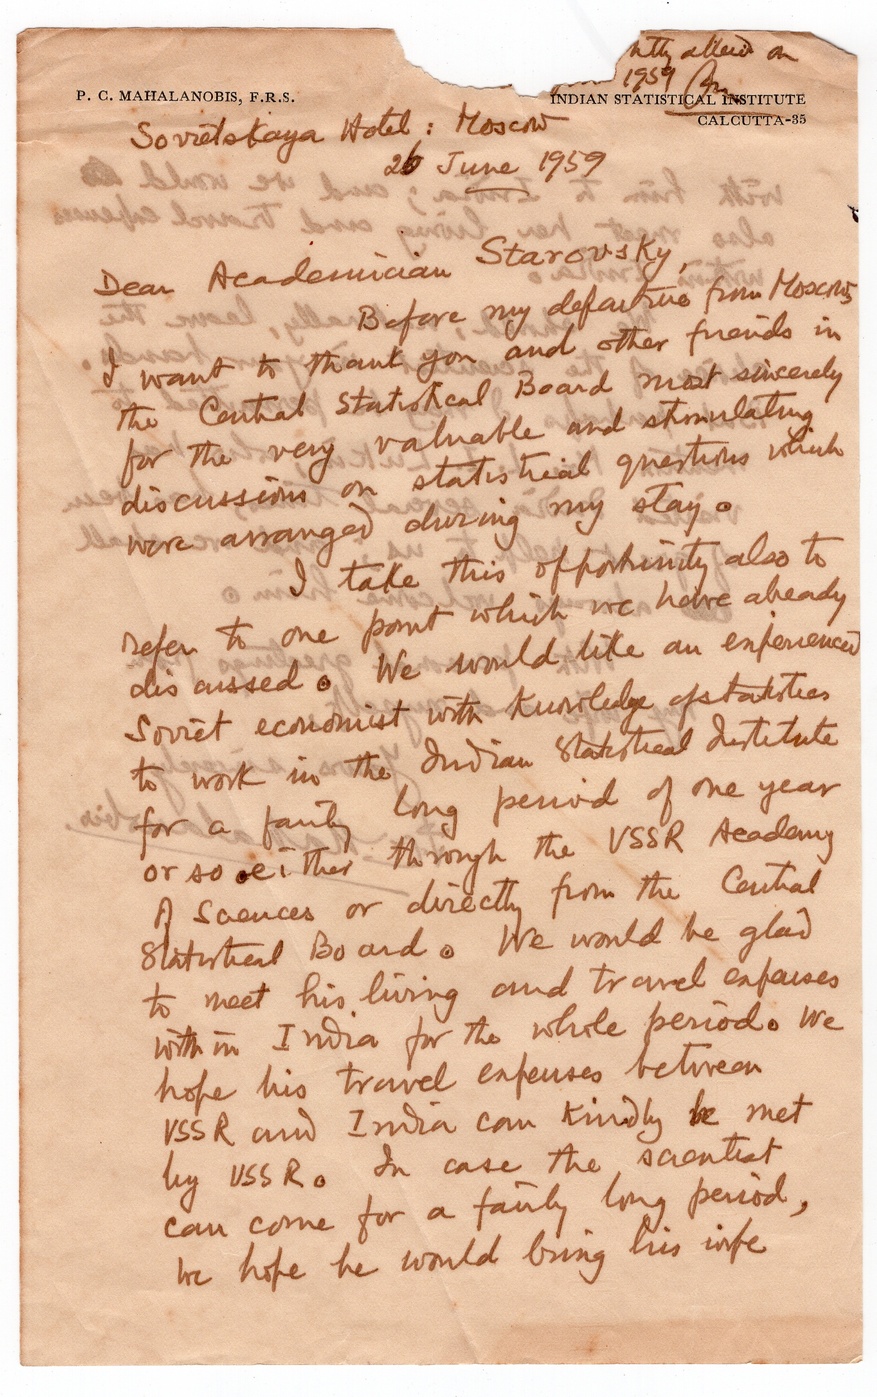 on
1959
P. C. MAHALANOBIS, F.R.S.
INDIAN STATISTICAL INSTITUTE
CALCUTTA-35
Sovietskaya Hotel : Moscow
26 June 1959
Dear Academician Starovsky,
Before my departure from Moscow,
I want to thank you and other friends in
the Central Statistical Board most sincerely
for the very valuable and stimulating
discussions on statistical questions which
were arranged during my stay.
I take this opportunity also to
refer to one point which we have already
discussed. We would like an experienced
Soviet economist with knowledge of statistics
to work in the Indian Statistical Institute
for a fairly long period of one year
or so either through the USSR Academy
of Sciences or directly from the Central
Statistical Board. We would be glad
to meet his living and travel expenses
within India for the whole period. We
hope his travel expenses between
USSR and India can kindly be met
by USSR. In case the scientist
can come for a fairly long period,
we hope he would bring his wife